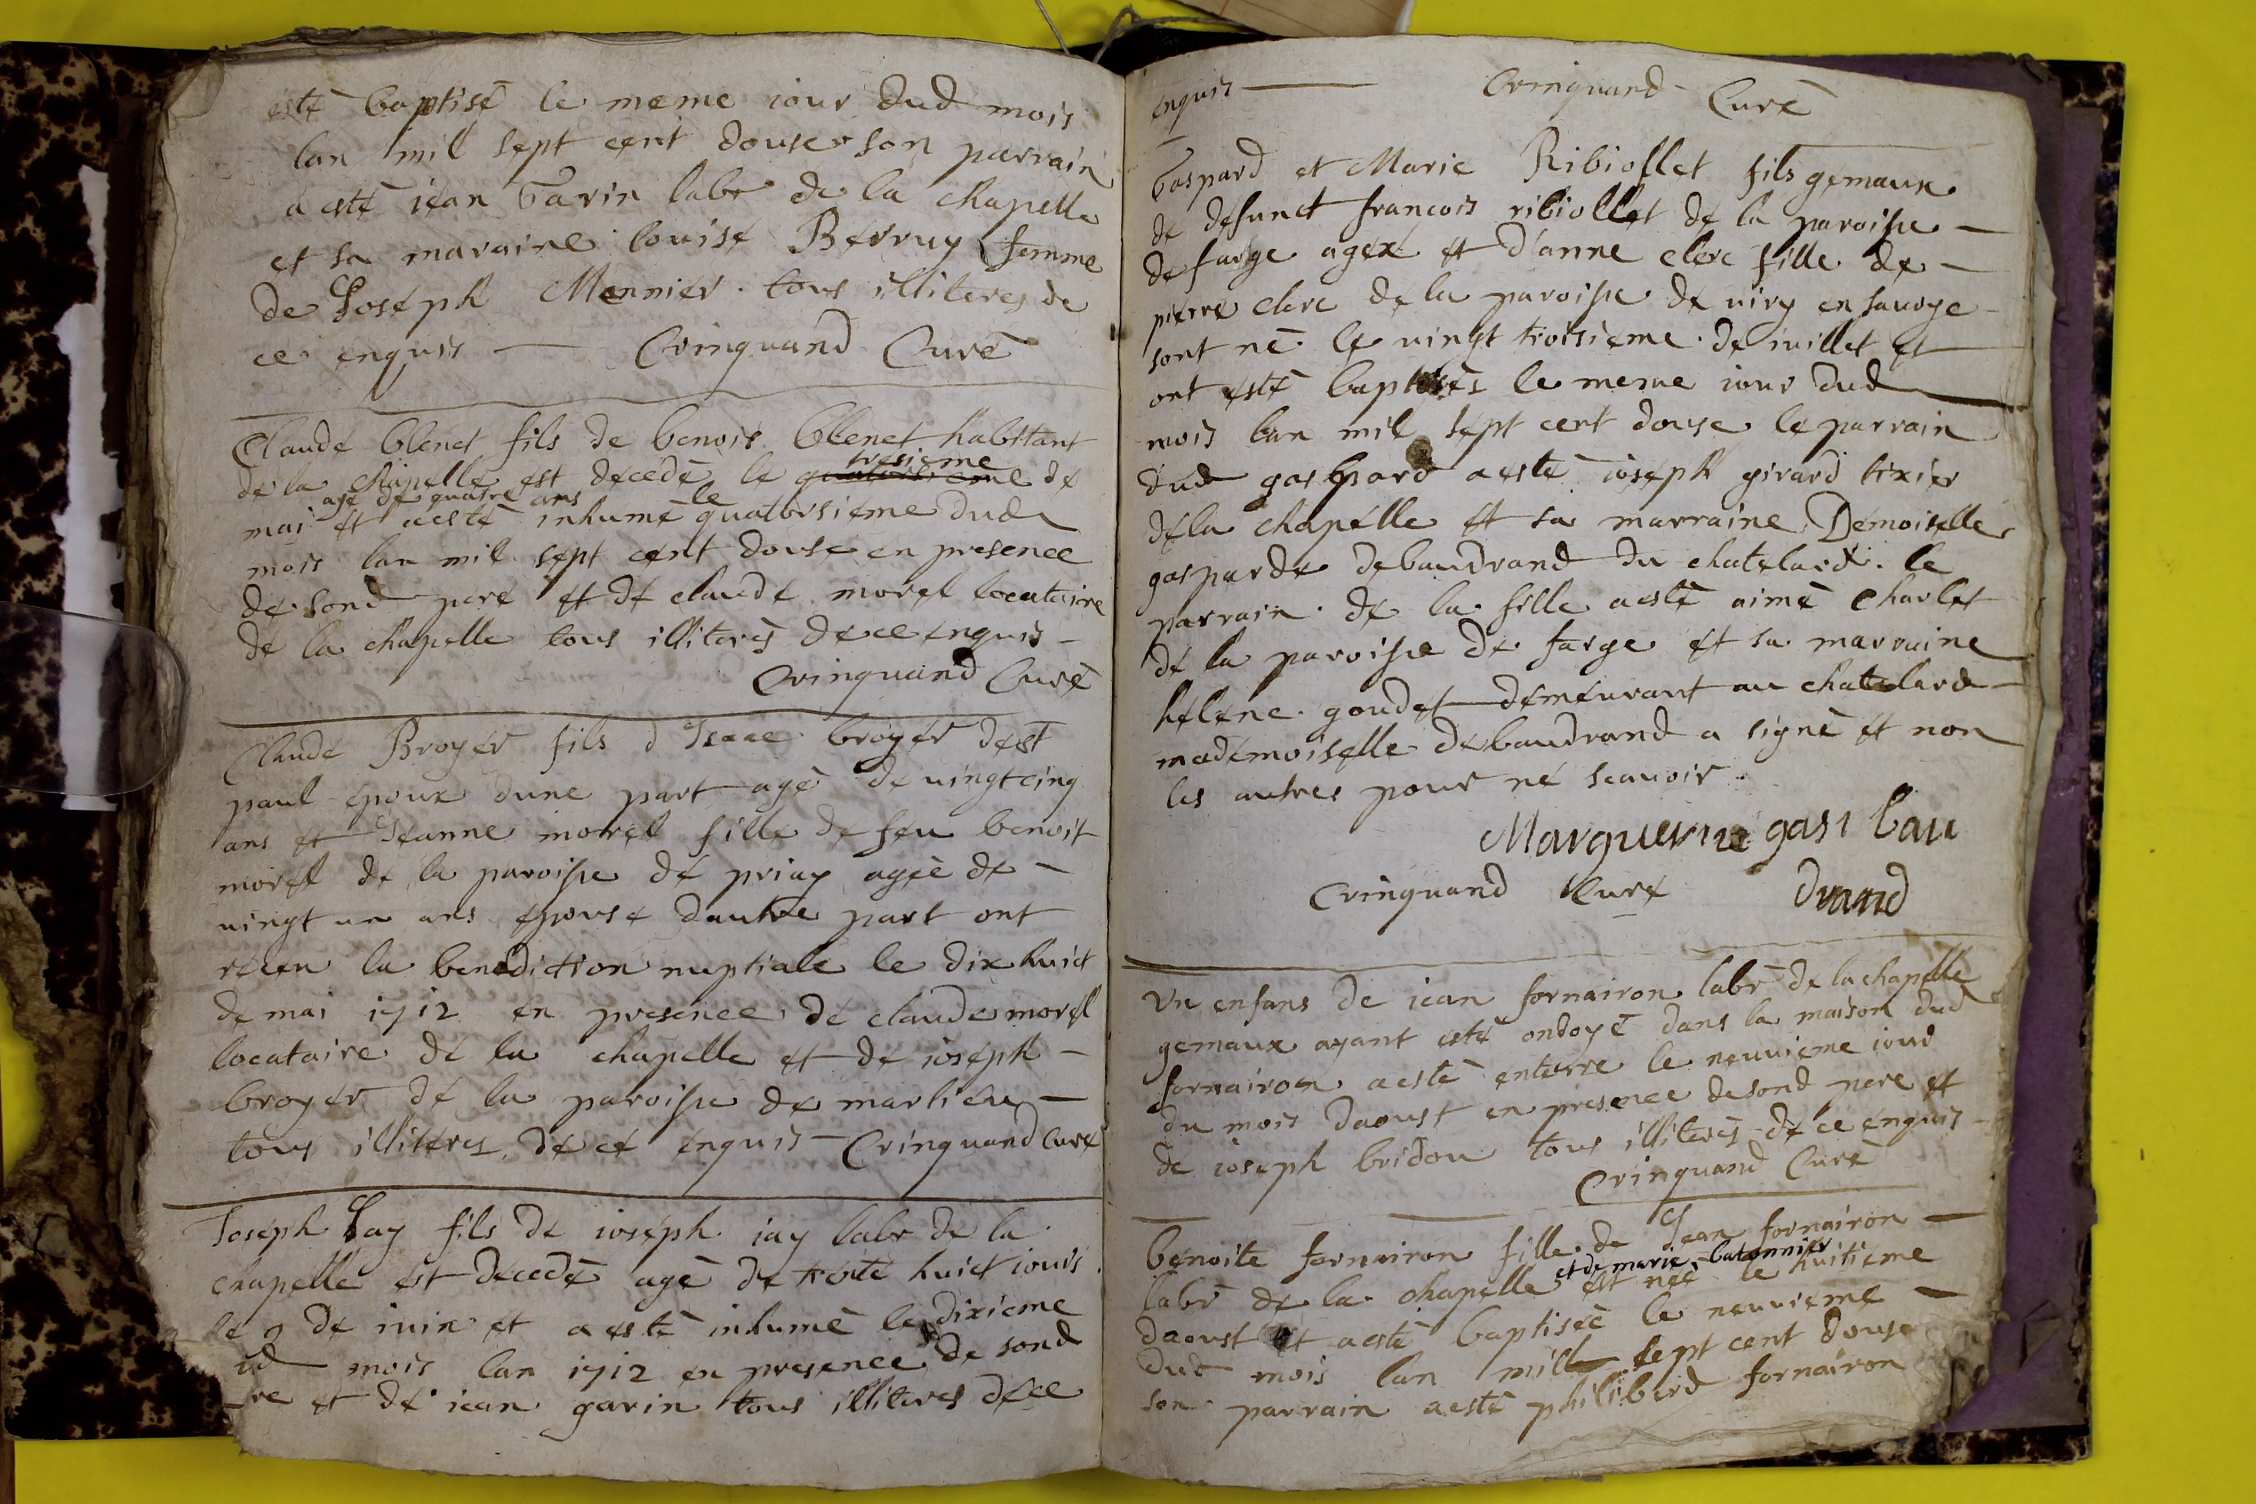 esté baptisé le meme iour dud mois
lan mil sept cent douse son parrain
a esté iean Garin labr de la chapelle
et sa maraine louise Berruy femme
de Joseph Mennier tous illiteres de
ce enquis — Crinquand Curé
Claude blenet fils de benois blenet habitant
de la chapelle est decedé le quatorsieme tresieme de
mai agé de quatre ans et a esté inhumé le quatorsieme dud
mois lan mil sept cent douse en presence
de sond pere et de claude morel locataire
de la chapelle tous illiterés de ce enquis —
Crinquand Curé
Claude Broyer fils d Isaac broyer de st
paul epoux dune part agé de uingt cinq
ans et Jeanne morel fille de feu benoit
morel de la paroisse de priay agée de —
uingt un ans epouse dautre part ont
receu la benediction nuptiale le dix huict
de mai 1712 en presence de claude morel
locataire de la chapelle et de ioseph —
broyer de la paroisse de —
tous illiteres de ce enquis — Crinquand Curé
Joseph Jay fils de ioseph iay labr de la
chapelle est decedé agé de trente huict iours
le 9 de iuin et a esté inhumé le dixieme
ud mois lan 1712 en presence de sond
re et de iean garin tous illiteres de ce
enquis — Crinquand Curé
Gaspard et Marie Ribiollet fils gemaux
de defunct francois ribiollet de la paroisse —
de farge et d'anne clerc fille de —
pierre clerc de la paroisse de uiry en sauoye
sont né le uingt troisieme de iuillet et
ont esté baptisés le meme iour dud
mois lan mil sept cent douse le parrain
dud gaspard a esté ioseph girard tixier
de la chapelle et sa marraine Demoiselle
gasparde debaudrand du chatelard. le
parrain de la fille a esté aimé Charlet
de la paroisse de farge et sa marraine
helene goudet demeurant au chatelard —
mademoiselle debaudrand a signé et non
les autres pour ne scauoir.
gas bau
Crinquand Curé drand
Un enfans de iean fornairon labr de la chapelle
gemaux ayant esté ondoyé dans la maison dud
fornairon a esté enterre le neuuieme iour
du mois daoust en presence de sond pere et
de ioseph bridou tous illiterés de ce enquis —
Crinquand Curé
benoite fornairon fille de Jean fornairon —
labr de la chapelle et de marie batonnier est neé le huitieme
daoust et a esté baptisée le neuuieme —
dud mois lan mill sept cent douse
son parrain a esté philiberd fornairon